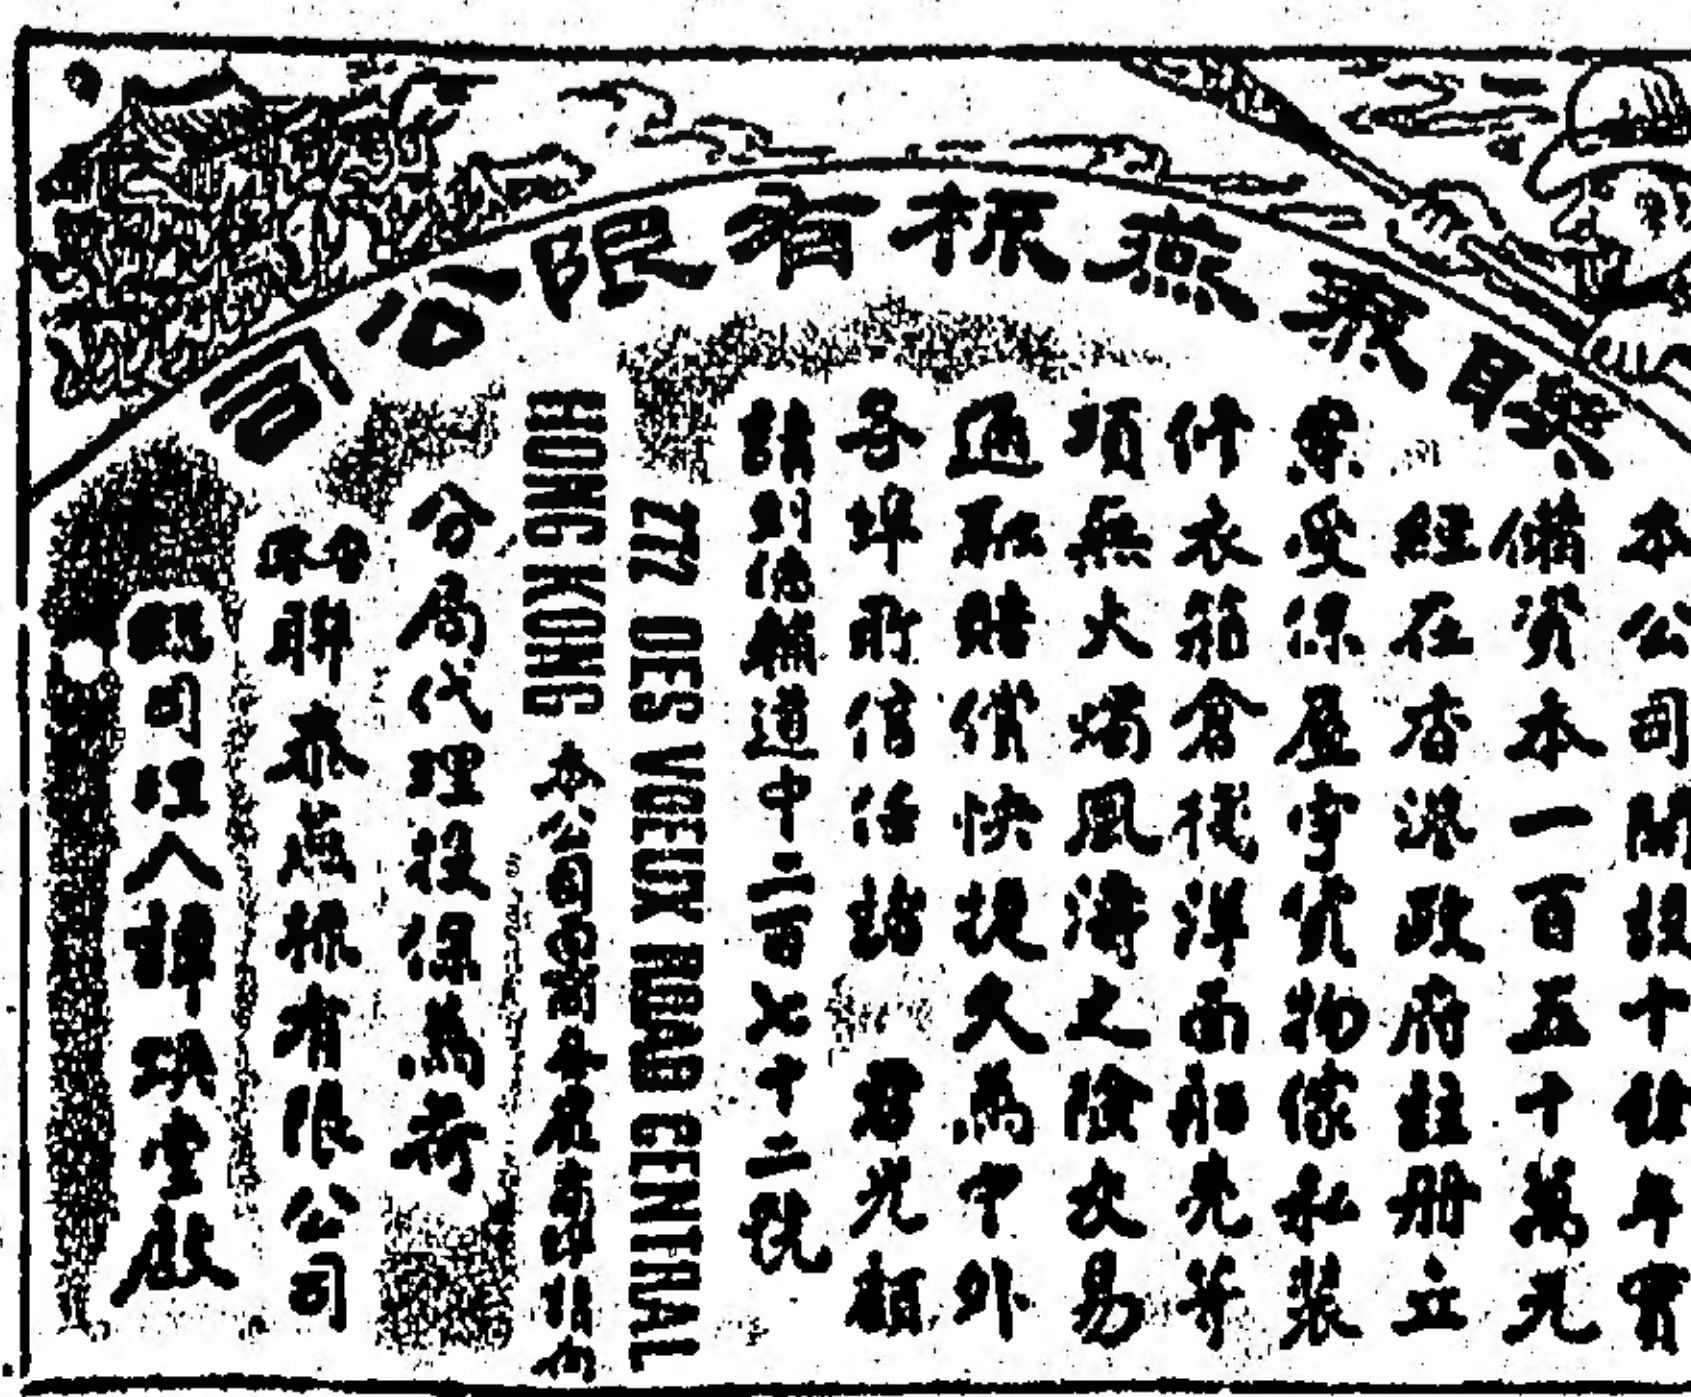 聯泰燕梳有限公司
本公司開設十餘年實
備資本一百五十萬元
經在香港政府註册立
案受保屋宇貨物傢私裝
修衣箱倉棧洋面船壳等
項無火燭風濤之險交易
通融賠償快捷久為中外
各埠所信任諸 君光顧
請到德輔道中二百七十二號
272 DES VOEUX ROAD CENTRAL
HONG KONG 本公司
分局代理投保為荷
聯泰燕梳有限公司
總司理人譚 堂啟